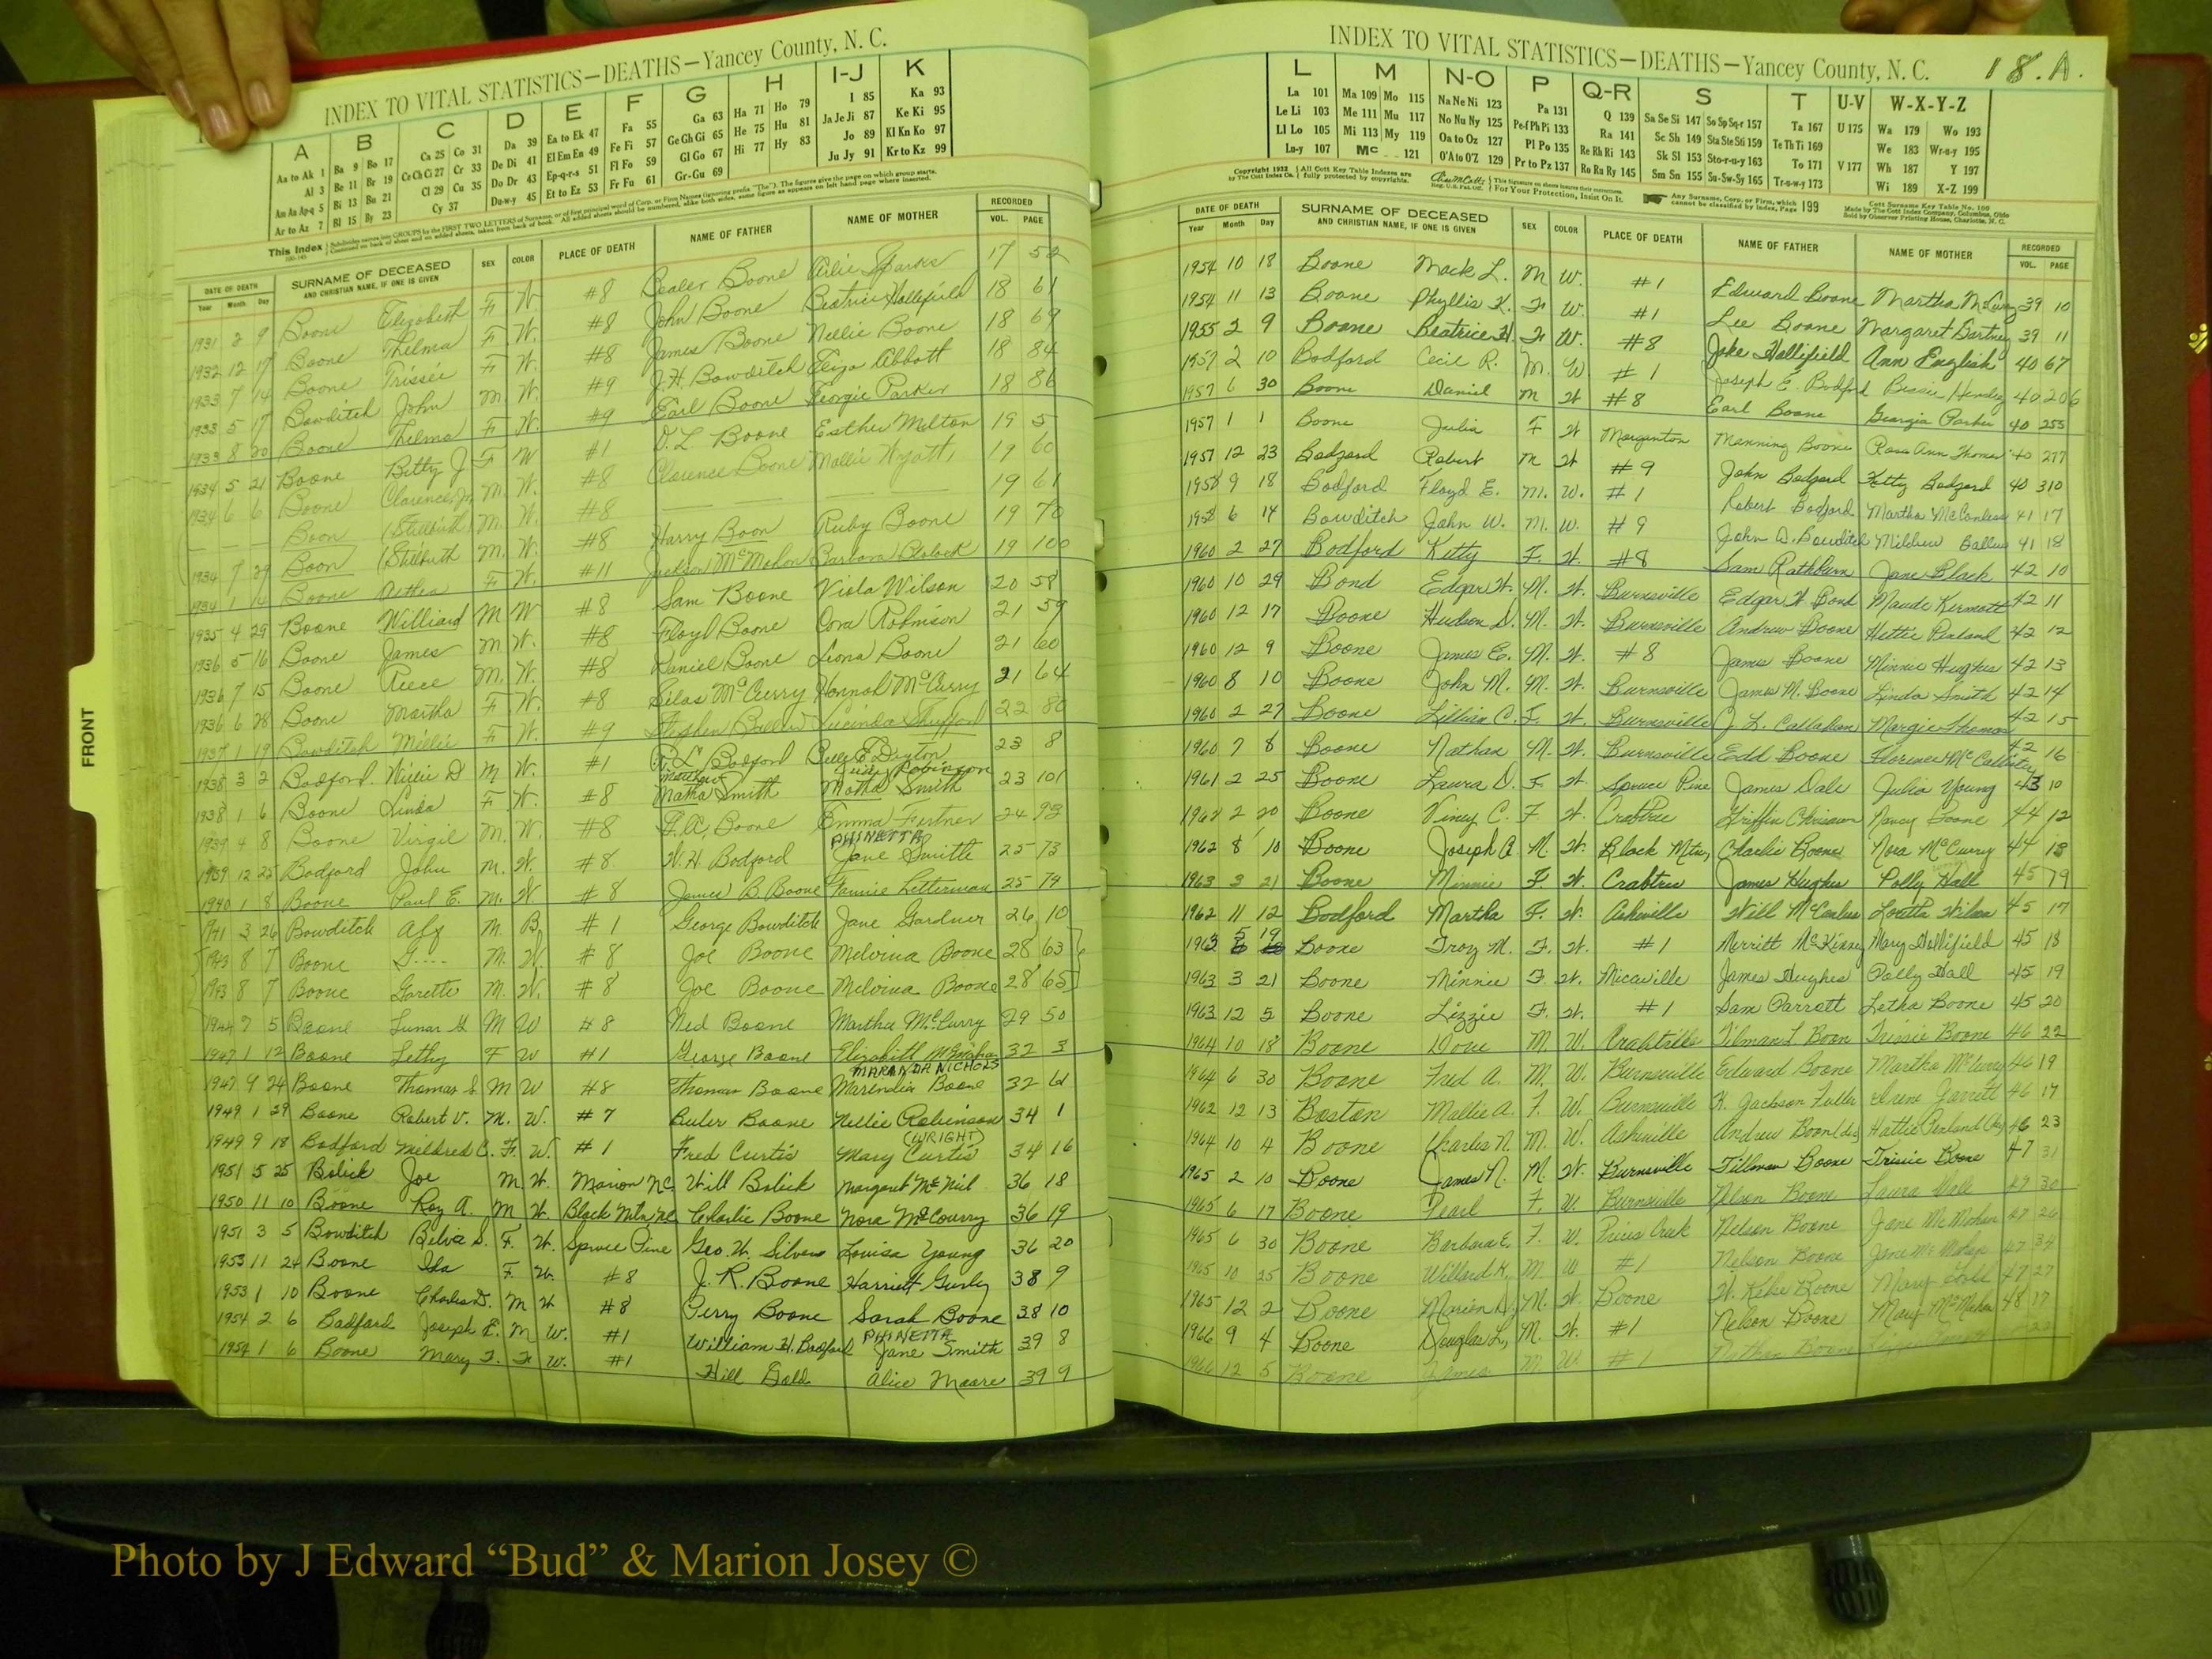 INDEX TO VITAL STATISTICS—DEATHS—Yancey County, N. C.
A B C D E F G H I-J K
Aa to Ak 1 Ba 9 Bo 17 Ca 25 Co 31 Da 39 Ea to Ek 47 Fa 55 Ga 63 Ha 71 Ho 79 I 85 Ka 93
Al 3 Be 11 Br 19 Ce Ch Ci 27 Cr 33 De Di 41 El Em En 49 Fe Fi 57 Ge Gh Gi 65 He 75 Hu 81 Ja Je Ji 87 Ke Ki 95
Am An Ap-q 5 Bi 13 Bu 21 Cl 29 Cu 35 Do Dr 43 Ep-q-r-s 51 Fl Fo 59 Gl Go 67 Hi 77 Hy 83 Jo 89 Kl Kn Ko 97
Ar to Az 7 Bl 15 By 23 Cy 37 Du-w-y 45 Et to Ez 53 Fr Fu 61 Gr-Gu 69 Ju Jy 91 Kr to Kz 99
This Index
DATE OF DEATH SURNAME OF DECEASED SEX COLOR PLACE OF DEATH NAME OF FATHER NAME OF MOTHER RECORDED
Year Month Day AND CHRISTIAN NAME, IF ONE IS GIVEN VOL. PAGE
1931 2 9 Boone Elizabeth F W. #8 Bealer Boone Arlie Sparks 17 52
1932 12 17 Boone Thelma F W. #8 John Boone Beatrice Hollifield 18 61
1933 7 14 Boone Trissie F W. #8 James Boone Nellie Boone 18 69
1933 5 17 Bowditch John M. W. #9 J.H. Bowditch Eliza Abbott 18 84
1933 8 20 Boone Thelma F W. #9 Earl Boone Georgie Parker 18 86
1934 5 21 Boone Betty J F W #1 D. L. Boone Esther Melton 19 5
1934 6 6 Boone Clarence Jr M. W. #8 Clarence Boone Mollie Wyatt 19 60
Boon (Stillbirth) M. W. #8 19 61
1934 7 29 Boon (Stillbirth M. W. #8 Harry Boon Ruby Boone 19 70
1934 1 Boone F W. #11 Jackson McMahon Barbara Blalock 19 100
1935 4 29 Boone Williard M W #8 Sam Boone Viola Wilson 20 58
1936 5 16 Boone James M W. #8 Floyd Boone Cora Robinson 21 59
1936 7 15 Boone Reece M. W. #8 Daniel Boone Leona Boone 21 60
1936 6 28 Boone Martha F W. #8 Silas McCurry Hannah McCurry 21 64
1937 1 19 Bowditch Millie F W. #9 Stephen Lucinda 22 80
1938 3 2 Bodford Willie D M W. #1 R. L. Bodford 23 8
1938 1 6 Boone Linda F W. #8 Matha Smith Matha Smith 23 101
1939 4 8 Boone Virgil M. W. #8 Boone Emma Fortner 24 93
PHINETTA
1939 12 25 Bodford John M. W. #8 W. H. Bodford Jane Smith 25 73
1940 1 8 Boone Paul E. M. W. #8 James B. Boone Fannie Letterman 25 74
1941 3 26 Bowditch Alf M. B. #1 George Bowditch Jane Gardner 26 10
1943 8 7 Boone G---- M. W. #8 Joe Boone Melvina Boone 28 63
1943 8 7 Boone Garette M. W. #8 Joe Boone Melvina Boone 28 65
1944 7 5 Boone Lunar G M W #8 Ned Boone Martha McCurry 29 50
1947 1 12 Boone Lethy F W #1 George Boone Elizabeth 32 3
MARANDA NICHOLS
1947 9 24 Boone Thomas S. M W #8 Thomas Boone Marendia Boone 32 61
1949 1 29 Boone Robert V. M. W. #7 Buler Boone Nellie Robinson 34 1
(WRIGHT)
1949 9 18 Bodford Mildred C. F. W. #1 Fred Curtis Mary Curtis 34 16
1951 5 25 Bolick Joe M. W. Marion NC. Will Bolick Margaret McNeil 36 18
1950 11 10 Boone Roy A. M W. Black Mtn, NC. Charlie Boone Nora McCourry 36 19
1951 3 5 Bowditch S. F. W. Spruce Pine Geo. W. Silvers Louisa Young 36 20
1953 11 24 Boone Ida F. W. #8 J. R. Boone Harriett Gurly 38 9
1953 1 10 Boone Charles D. M W #8 Perry Boone Sarah Boone 38 10
PHINETTA
1954 2 6 Badford Joseph E. M W. #1 William H. Badford Jane Smith 39 8
1954 1 6 Boone Mary F. W. #1 Hill Alice Moore 39 9
FRONT
INDEX TO VITAL STATISTICS—DEATHS—Yancey County, N. C. 18.A.
L M N-O P Q-R S T U-V W-X-Y-Z
La 101 Ma 109 Mo 115 Na Ne Ni 123 Pa 131 Q 139 Sa Se Si 147 So Sp Sq-r 157 Ta 167 U 175 Wa 179 Wo 193
Le Li 103 Me 111 Mu 117 No Nu Ny 125 Pe-f Ph Pi 133 Ra 141 Sc Sh 149 Sta Ste Sti 159 Te Th Ti 169 We 183 Wr-u-y 195
Ll Lo 105 Mi 113 My 119 Oa to Oz 127 Pl Po 135 Re Rh Ri 143 Sk Sl 153 Sto-r-u-y 163 To 171 V 177 Wh 187 Y 197
Lu-y 107 Mc 121 O'A to O'Z 129 Pr to Pz 137 Ro Ru Ry 145 Sm Sn 155 Su-Sw-Sy 165 Tr-u-w-y 173 Wi 189 X-Z 199
Copyright 1932 by The Cott Index Co. All Cott Key Table Indexes are fully protected by copyrights. For Your Protection, Insist On It. Any Surname, Corp. or Firm, which cannot be classified by Index, Page 199
Cott Surname Key Table No. 100
Made by The Cott Index Company, Columbus, Ohio
Sold by Observer Printing House, Charlotte, N. C.
DATE OF DEATH SURNAME OF DECEASED SEX COLOR PLACE OF DEATH NAME OF FATHER NAME OF MOTHER RECORDED
Year Month Day AND CHRISTIAN NAME, IF ONE IS GIVEN VOL. PAGE
1954 10 18 Boone Mack L. M W. #1 Edward Boone Martha McCurry 39 10
1954 11 13 Boone Phyllis K. W. #1 Lee Boone Margaret 39 11
1955 2 9 Boone Beatrice H. W. #8 Jake Hollifield Ann English 40 67
1957 2 10 Bodford Cecil R. M. W. #1 Joseph E. Bodford 40 206
1957 6 30 Boone Daniel M W #8 Earl Boone Georgia Parker 40 255
1957 1 1 Boone Julia F W Morganton Manning Boone Rosa Ann Thomas 40 277
1957 12 23 Bodgard Robert M W #9 John Bodgard Kitty Bodgard 40 310
1958 9 18 Bodford Floyd E. M. W. #1 Robert Bodford Martha 41 17
1958 6 14 Bowditch John W. M. W. #9 John D. Bowditch 41 18
1960 2 27 Bodford Kitty F. W. #8 Sam Rathburn Jane Black 42 10
1960 10 29 Bond Edgar W. M. W. Burnsville Edgar W Bond Maude 42 11
1960 12 17 Boone Hudson D. M. W. Burnsville Andrew Boone Hettie Penland 42 12
1960 12 9 Boone James E. M. W. #8 James Boone Minnie Hughes 42 13
1960 8 10 Boone John M. M. W. Burnsville James M. Boone Linda Smith 42 14
1960 2 27 Boone Lillian C. F. W. Burnsville J. L. Callahan Margie Thomas 42 15
1960 7 8 Boone Nathan M. W. Burnsville Edd Boone Florence 42 16
1961 2 25 Boone Laura D. F. W. Spruce Pine James Dale Julia Young 43 10
1962 2 20 Boone Viney C. F. W. Crabtree Griffin Nancy Boone 44 12
1962 8 10 Boone Joseph A. M. W. Black Mtn, Charlie Boone Nora McCurry 44 13
1963 3 21 Boone Minnie F. W. Crabtree James Hughes Polly Hall 45 79
1962 11 12 Bodford Martha F. W. Asheville Will Loretta Wilson 45 17
1963 5 19 Boone Troy M. F. W. #1 Merritt McKinney Mary Hollifield 45 18
1963 3 21 Boone Minnie F. W. Micaville James Hughes Polly Hall 45 19
1963 12 5 Boone Lizzie F. W. #1 Sam Parrott Letha Boone 45 20
1964 10 18 Boone Dove M. W. Tilman L Boon Trissie Boone 46 22
1964 6 30 Boone Fred A. M. W. Burnsville Edward Boone Martha McCurry 46 19
1962 12 13 Boston Mallie A. F. W. Burnsville K. Jackson Fuller Irene Garrett 46 17
1964 10 4 Boone Charles N. M. W. Asheville Andrew Boon Hattie Penland 46 23
1965 2 10 Boone James N. M. W. Burnsville Tillman Boone Trissie Boone 47 31
1965 6 17 Boone Pearl F. W. Burnsville Nelson Boone Laura 47 30
1965 6 30 Boone Barbara E. F. W. Prices Creek Nelson Boone Jane McMahan 47 26
1965 10 25 Boone Willard H. M W #1 Nelson Boone Jane McMahan 47 34
1965 12 2 Boone Marion D. M. W. Boone W. Kike Boone Mary 47 27
1966 9 4 Boone Douglas L, M. W. #1 Nelson Boone Mary McMahan 48 17
1966 12 5 Boone James M W. #1 Nathan Boone
Photo by J Edward “Bud” & Marion Josey ©